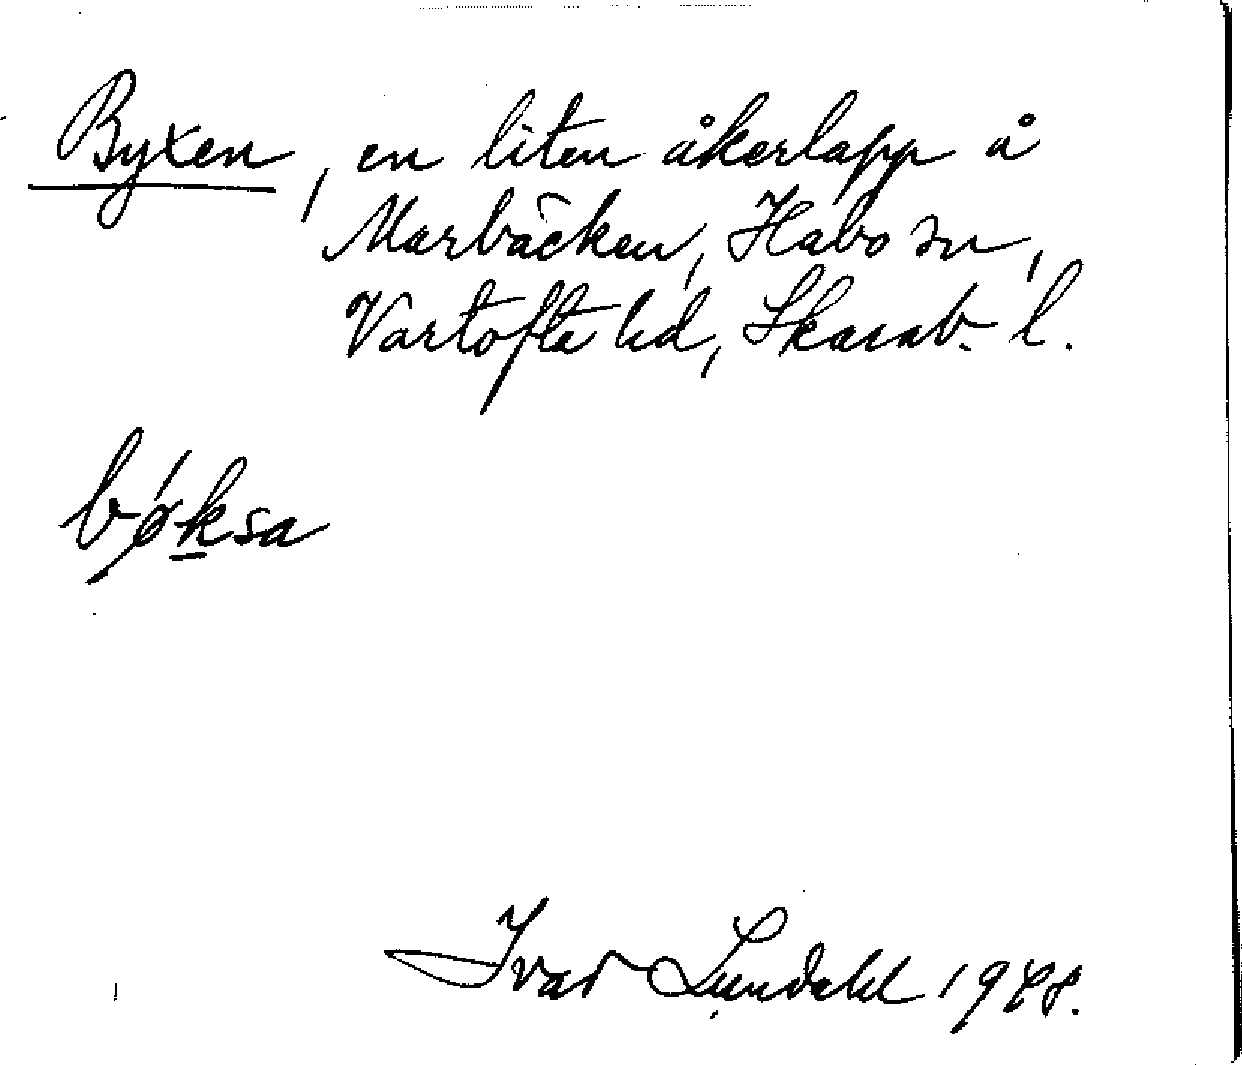 Byxen, en liten åkerlapp å
Marbäcken, Habo sn,
Vartofta hd, Skarab. l.
bǿksa
Ivar Lundahl 1948.